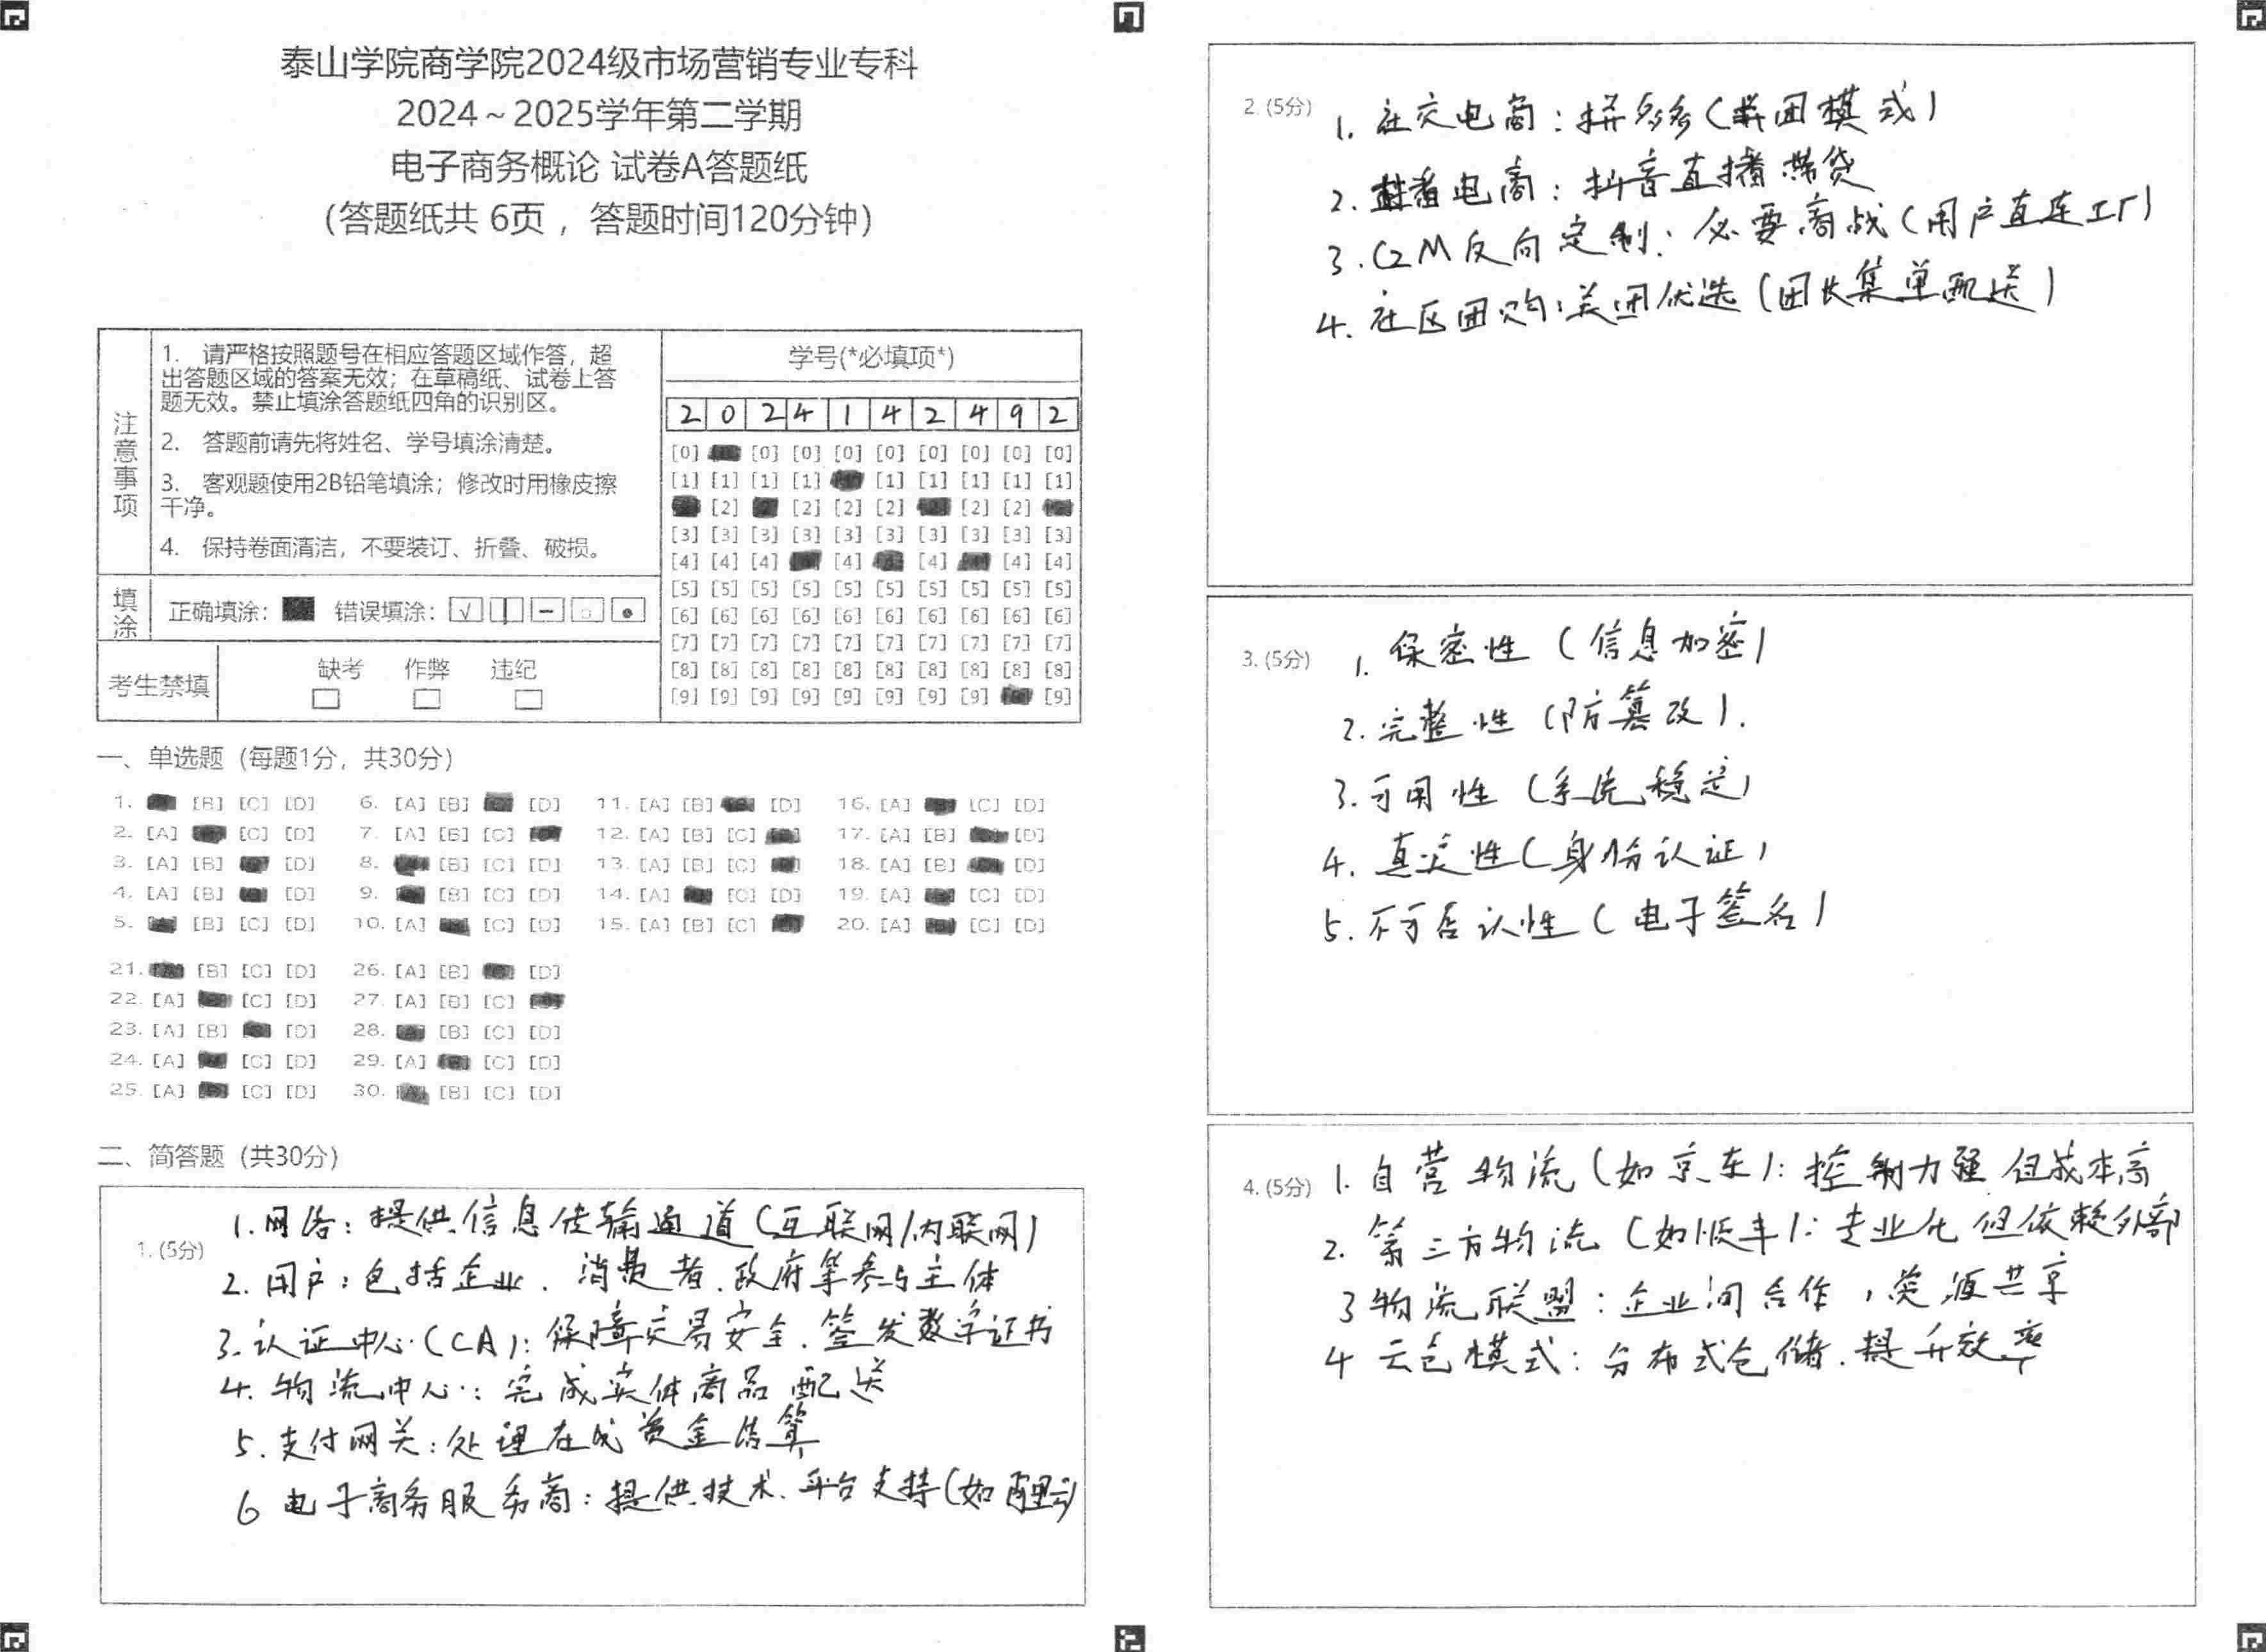 泰山学院商学院2024级市场营销专业专科
2024～2025学年第二学期
电子商务概论 试卷A答题纸
（答题纸共 6页 ，答题时间120分钟）
注意事项
1. 请严格按照题号在相应答题区域作答，超
出答题区域的答案无效；在草稿纸、试卷上答
题无效。禁止填涂答题纸四角的识别区。
2. 答题前请先将姓名、学号填涂清楚。
3. 客观题使用2B铅笔填涂；修改时用橡皮擦
干净。
4. 保持卷面清洁，不要装订、折叠、破损。
填涂 正确填涂： 错误填涂：
考生禁填 缺考 作弊 违纪
学号(*必填项*)
2 0 2 4 1 4 2 4 9 2
[0] [0] [0] [0] [0] [0] [0] [0] [0]
[1] [1] [1] [1] [1] [1] [1] [1] [1]
[2] [2] [2] [2] [2] [2]
[3] [3] [3] [3] [3] [3] [3] [3] [3] [3]
[4] [4] [4] [4] [4] [4] [4]
[5] [5] [5] [5] [5] [5] [5] [5] [5] [5]
[6] [6] [6] [6] [6] [6] [6] [6] [6] [6]
[7] [7] [7] [7] [7] [7] [7] [7] [7] [7]
[8] [8] [8] [8] [8] [8] [8] [8] [8] [8]
[9] [9] [9] [9] [9] [9] [9] [9] [9]
一、单选题（每题1分，共30分）
1. [B] [C] [D] 6. [A] [B] [D] 11. [A] [B] [D] 16. [A] [C] [D]
2. [A] [C] [D] 7. [A] [B] [C] 12. [A] [B] [C] 17. [A] [B] [D]
3. [A] [B] [D] 8. [B] [C] [D] 13. [A] [B] [C] 18. [A] [B] [D]
4. [A] [B] [D] 9. [B] [C] [D] 14. [A] [C] [D] 19. [A] [C] [D]
5. [B] [C] [D] 10. [A] [C] [D] 15. [A] [B] [C] 20. [A] [C] [D]
21. [B] [C] [D] 26. [A] [B] [D]
22. [A] [C] [D] 27. [A] [B] [C]
23. [A] [B] [D] 28. [B] [C] [D]
24. [A] [C] [D] 29. [A] [C] [D]
25. [A] [C] [D] 30. [A] [B] [C] [D]
二、简答题（共30分）
1. (5分)
1. 网络：提供信息传输通道（互联网/内联网）
2. 用户：包括企业、消费者、政府等参与主体
3. 认证中心（CA）：保障交易安全、签发数字证书
4. 物流中心：完成实体商品配送
5. 支付网关：处理在线资金结算
6 电子商务服务商：提供技术、平台支持（如阿里云）
2. (5分)
1. 社交电商：拼多多（拼团模式）
2. 直播电商：抖音直播带货
3. C2M反向定制：必要商城（用户直连工厂）
4. 社区团购：美团优选（团长集单配送）
3. (5分)
1. 保密性（信息加密）
2. 完整性（防篡改）.
3. 可用性（系统稳定）
4. 真实性（身份认证）
5. 不可否认性（电子签名）
4. (5分)
1. 自营物流（如京东）：控制力强但成本高
2. 第三方物流（如顺丰）：专业化但依赖外部
3 物流联盟：企业间合作，资源共享
4 云仓模式：分布式仓储、提升效率